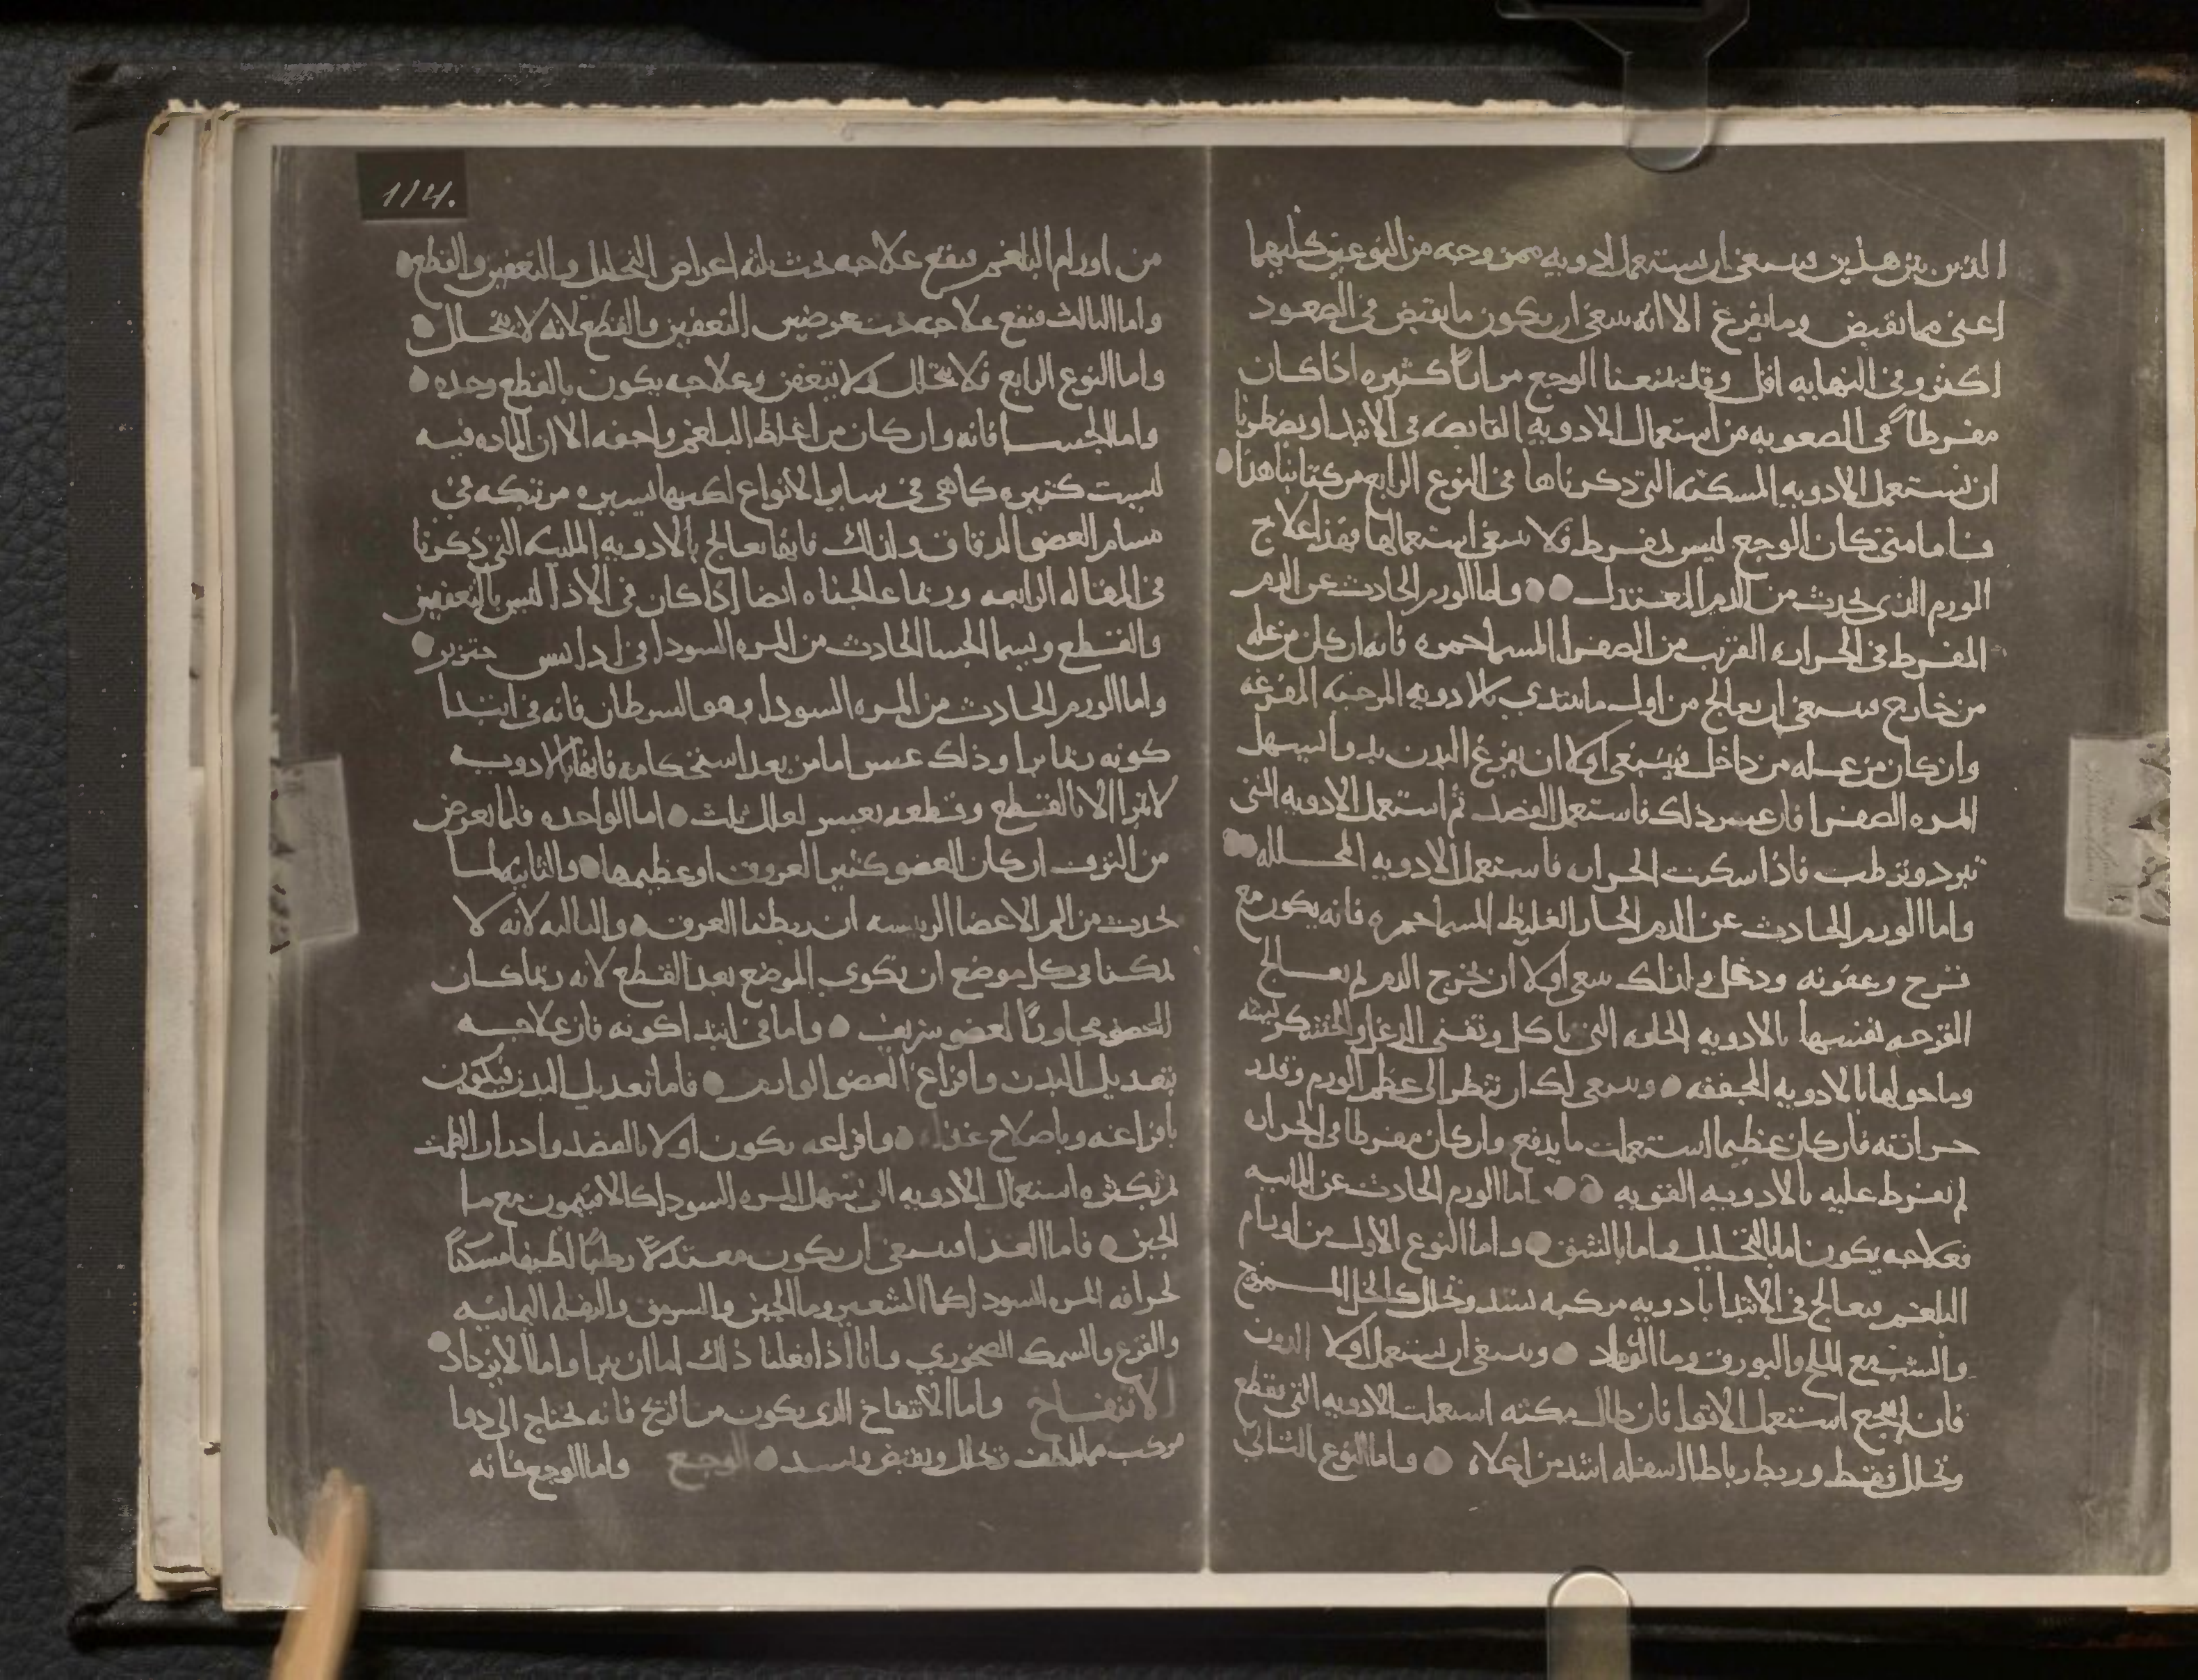 الذين بين هذين فينبغي ان نستعمل الادويه ممزوجه من النوعين كليهما
اعني مما يقبض وما يفرغ الا انه ينبغي ان يكون ما يقبض في الصعود
اكثر وفي النهايه اقل وقد يمنعنا الوجع مرارا كثيره اذا كان
مفرطا في الصعوبه من استعمال الادويه القابضه في الابتدا ويضطرنا
ان نستعمل الادويه المسكنه التي ذكرناها في النوع الرابع من كتابنا هذا
فاما متى كان الوجع ليس بمفرط فلا ينبغي استعمالها فهذا علاج
الورم الذي يحدث من الدم المعتدل واما الورم الحادث عن الدم
المفرط في الحراره القريب من الصفرا المسما حمره فانه ان كان من عله
من خارج فينبغي ان يعالج من اول ما يبتدي بالادويه المرخيه المفرغه
وان كان من عله من داخل فينبغي اولا ان يفرغ البدن بدوا يسهل
المره الصفرا فان عسر ذلك فاستعمل الفصد ثم استعمل الادويه التي
تبرد وترطب فاذا سكنت الحراره فاستعمل الادويه المحلله
واما الورم الحادث عن الدم الحار الغليظ المسما جمره فانه يكون مع
قرح وعفونه ودغل ولذلك ينبغي اولا ان يخرج الدم ثم يعالج
القرحه نفسها بالادويه الحاده التي تاكل وتفني الدغل والخشكريشه
وما حولها بالادويه المجففه وينبغي لك ان تنظر الى عظم الورم وقدر
حرارته فان كان عظيما استعملت ما يدفع وان كان مفرطا في الحراره
لم تفرط عليه بالادويه القويه اما الورم الحادث عن المائيه
فعلاجه يكون اما بالتحليل واما بالنشق واما النوع الاول من اورام
البلغم فيعالج في الابتدا بادويه مركبه تشد وتحلل كالخل الممزوج
والشب مع الملح والبورق وما الرماد وينبغي ان نستعمل اولا الدون
فان لم ينجع استعمل الاقوا فان طال مكثه استعملت الادويه التي تقطع
وتحلل فقط وربط رباطا اسفله اشد من اعلاه واما النوع الثاني
114.
من اورام البلغم فيقع علاجه تحت ثلثه اعراض التحليل والتعفين والقطع
واما الثالث فيقع علاجه تحت عرضين التعفين والقطع لانه لا يتحلل
واما النوع الرابع فلا يتحلل ولا يتعفن وعلاجه يكون بالقطع وحده
واما الجسا فانه وان كان من اغلظ البلغم واجفه الا ان الماده فيه
ليست كثيره كما هي في ساير الانواع لكنها يسيره مرتبكه في
مسام العضو الدقاق ولذلك فانها تعالج بالادويه الملينه التي ذكرنا
في المقاله الرابعه وربما عالجناه ايضا اذا كان في بالتعفين
والقطع ويسما الجسا الحادث من المره السودا في خنزير
واما الورم الحادث من المره السودا وهو السرطان فانه في ابتدا
كونه ربما برا وذلك عسر اما من بعد استحكامه فانها بالادويه
لا تبرا الا بالقطع وقطعه يعسر لعلل ثلث اما الواحده فلما يعرض
من النزف ان كان العضو كثير العروق او عظيمها والثانيه لما
يحدث من الم الاعضا الرييسه ان ربطنا العروق والثالثه لانه لا
يمكنا في كل موضع ان نكوي الموضع بعد القطع لانه ربما كان
العضو مجاورا لعضو شريف واما في ابتدا كونه فان علاجه
بتعديل البدن وافراغ العضو الوارم فاما تعديل البدن فيكون
بافراغه وباصلاح غذاه وافراغه يكون اولا بالفصد وادرار الطمث
ثم بكثره استعمال الادويه التي تسهل المره السودا كالافتيمون مع ما
الجبن فاما الغدا فينبغي ان يكون معتدلا رطبا لطيفا مسكنا
لحرافه المره السودا كما الشعير وما الجبن والسرمق والبقله اليمانيه
والقرع والسمك الصخوري وانا اذا فعلنا ذلك اما ان يبرا واما الا يزداد
الانتفاخ واما الانتفاخ الذي يكون من الريح فانه يحتاج الى دوا
مركب مما يلطف ويحلل ويقبض ويشد الوجع واما الوجع فانه